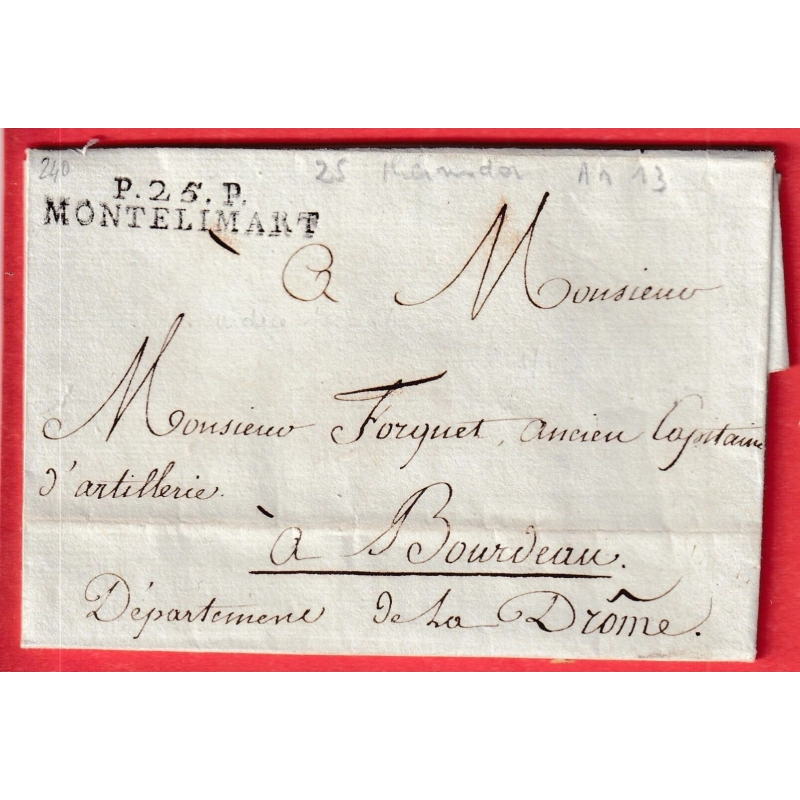 240
25 thermidor An 13
P.25.P.
MONTELIMART
à Monsieur
Monsieur Forquet, ancien Capitaine
d'artillerie.
à Bourdeau.
Département de La Drôme.